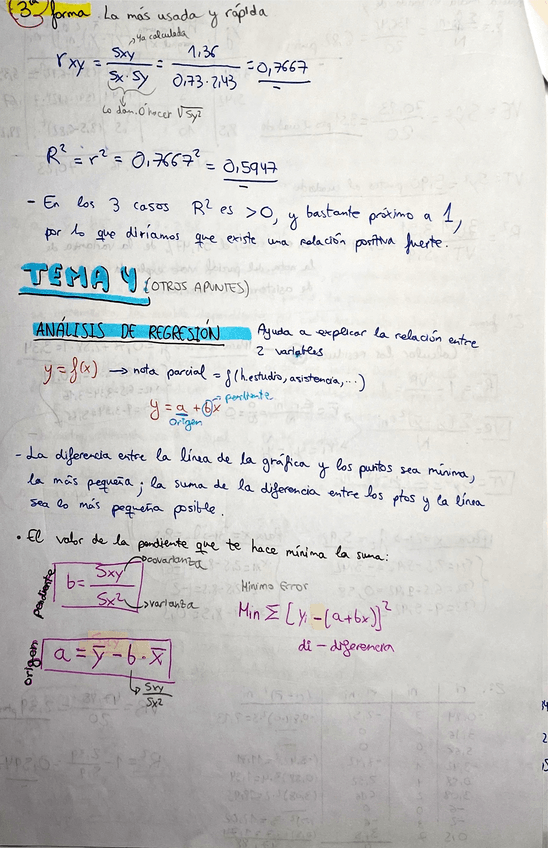 3ª forma. La más usada y rápida
→ Ya calculada
rxy = Sxy / Sx · Sy = 1,36 / 0,73 · 2,43 = 0,7667
Lo dan. Ó hacer √Sy²
R² = r² = 0,7667² = 0,5947
- En los 3 casos R² es >0, y bastante próximo a 1,
por lo que diríamos que existe una relación positiva fuerte.
TEMA 4 (OTROS APUNTES)
ANÁLISIS DE REGRESIÓN Ayuda a explicar la relación entre
2 variables
y = f(x) → nota parcial = f(h.estudio, asistencia, ...)
y = a + bx → pendiente
origen
- La diferencia entre la línea de la gráfica y los puntos sea mínima,
la más pequeña; la suma de la diferencia entre los ptos y la línea
sea lo más pequeña posible.
• El valor de la pendiente que te hace mínima la suma:
pendiente b = Sxy / Sx² → covarianza → varianza
Mínimo Error
Min Σ [yi - (a+bx)]²
di - diferencia
origen a = ȳ - b · x̄
Sxy / Sx²